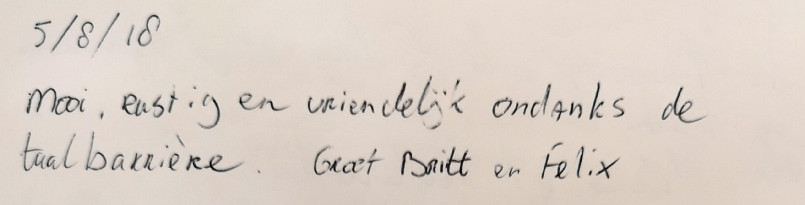 5/8/18
Mooi, rustig en vriendelijk ondanks de
taalbarrière. Groet Britt en Felix